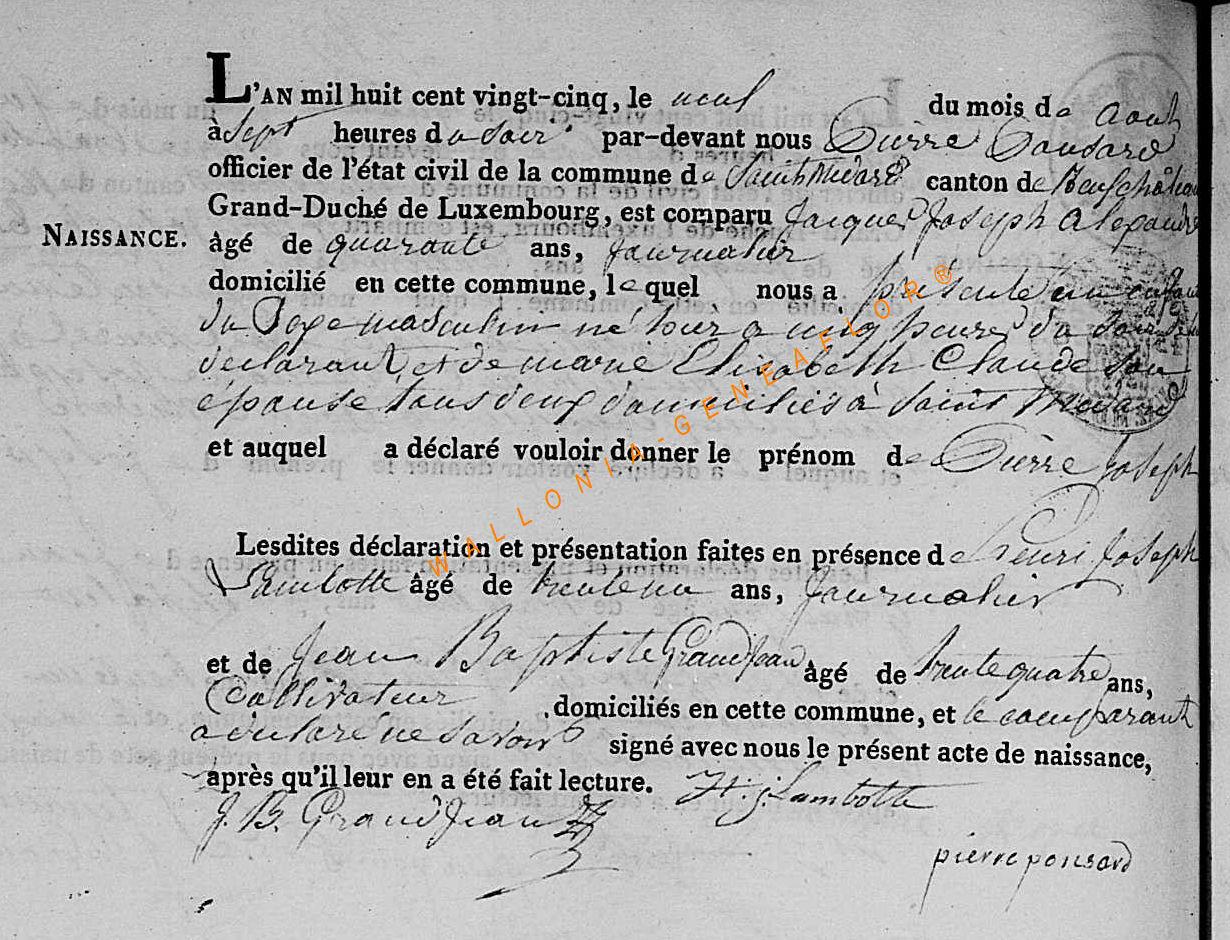 L'AN mil huit cent vingt-cinq, le neuf du mois de Aout
à Sept heures du Soir par-devant nous Pierre Ponsard
officier de l'état civil de la commune de Saint Médard canton de Neufchâteau
Grand-Duché de Luxembourg, est comparu Jacques Joseph Alexandre
NAISSANCE.
âgé de quarante ans, Journalier
domicilié en cette commune, lequel nous a présenté un enfant
du Sexe masculin né à cinq heures du Soir
déclarant, et de marie Elisabeth Claude Son
épouse tous deux domiciliés à Saint Médard
et auquel a déclaré vouloir donner le prénom de Pierre Joseph
Lesdites déclaration et présentation faites en présence de Henri Joseph
Lambotte âgé de trente un ans, Journalier
et de Jean Baptiste Grandjean âgé de trente quatre ans,
Cultivateur , domiciliés en cette commune, et le comparant
a déclaré ne Savoir signé avec nous le présent acte de naissance,
après qu'il leur en a été fait lecture. H. j. Lambotte
J. B. GrandJean
pierre ponsard
WALLONIA-GENEAFLOR®